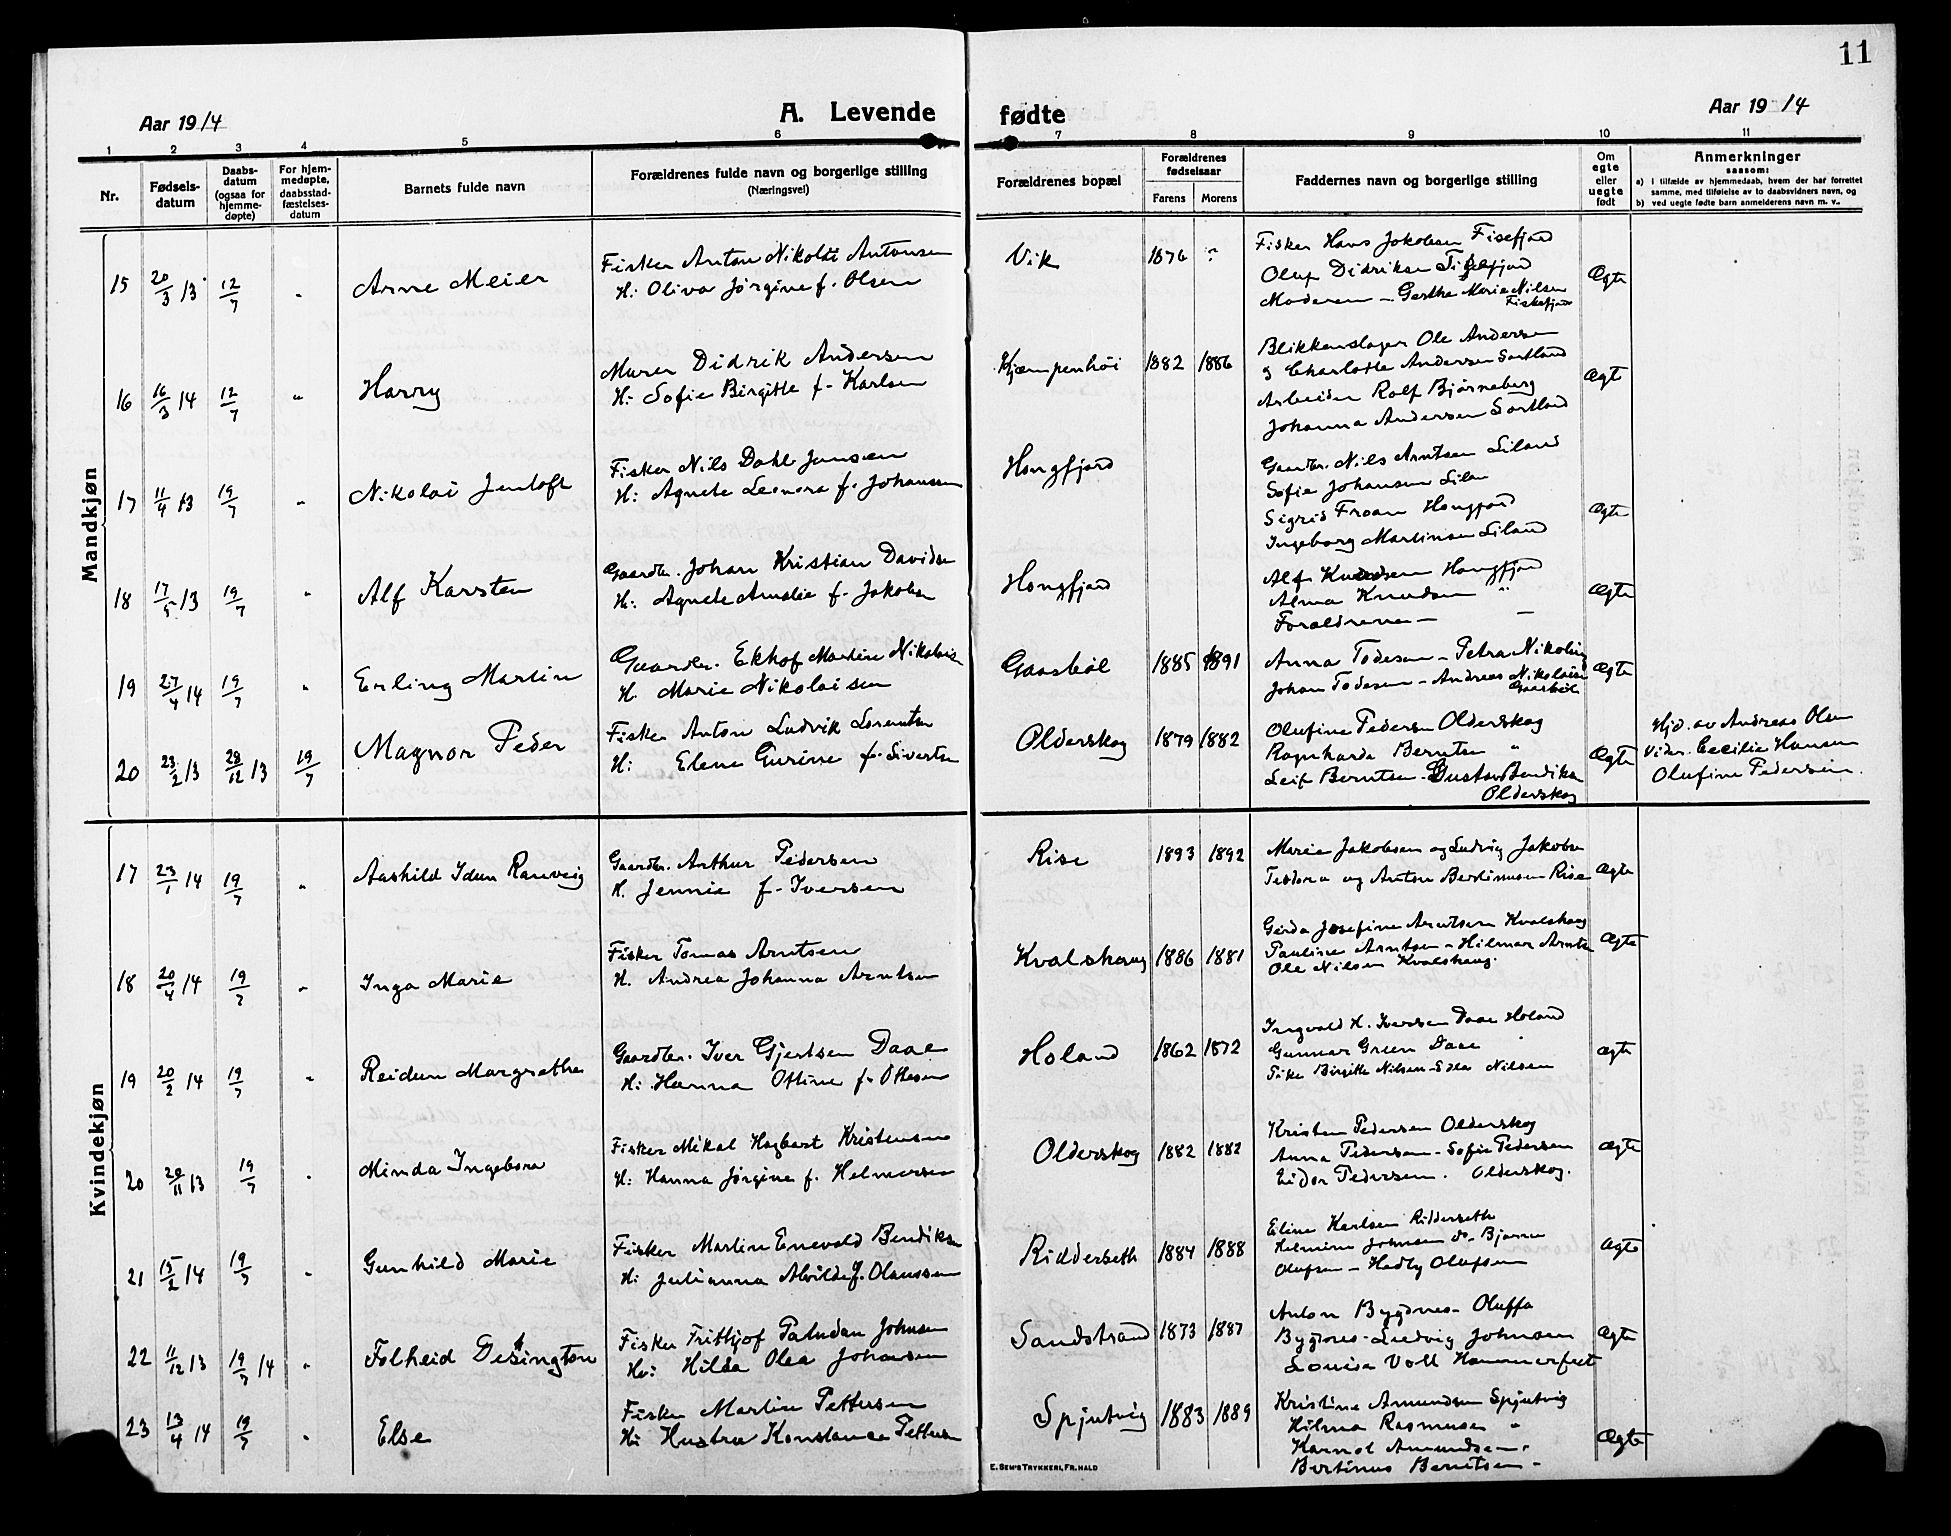 11
Aar 1914
A. Levende
fødte
Aar 1914
1 2 3 4 5 6 7 8 9 10 11
Nr.
Fødsels-
datum
Daabs-
datum
(ogsaa for
hjemme-
døpte)
For hjem-
medøpte,
daabsstad-
fæstelses-
datum
Barnets fulde navn
Forældrenes fulde navn og borgerlige stilling
(Næringsvei)
Forældrenes bopæl
Forældrenes
fødselsaar
Farens Morens
Faddernes navn og borgerlige stilling
Om
egte
eller
uegte
født
Anmerkninger
saasom:
a) I tilfælde av hjemmedaab, hvem der har forrettet
samme, med tilføielse av to daabsvidners navn, og
b) ved uegte fødte barn anmelderens navn m. v..
Mandkjøn
15 20/3 13 12/7 " Arne Meier
Fisker Anton Nikolai Antonsen
H: Oliva Jørgine f. Olsen
Vik 1876 "
Fisker Hans Jokobsen Fisefjord
Oluf Didriksen
Moderen - Gerthe Marie Nilsen
Fiskefjord
Ægte
16 16/3 14 12/7 " Harry
Murer Didrik Andersen
H: Sofie Birgitte f. Karlsen
Kjæmpenhöi 1882 1886
Blikkenslager Ole Andersen
og Charlotte Andersen Sortland
Arbeider Rolf Bjørneberg
Johanna Andersen Sortland
Ægte
17 11/4 13 19/7 " Nikolai Jentoft
Fisker Nils Dahl Jensen
H: Agnete Leonora f. Johansen
Hongfjord
Gaardbr. Nils Arntsen Liland
Sofie Johansen
Sigrid Hongfjord
Ingeborg Martinsen Liland
Ægte
18 17/5 13 19/7 " Alf Karsten
Gaardbr. Johan Kristian Davidsen
H: Agnete Amalie f. Jakobsen
Hongfjord
Alf Knudsen Hongfjord
Alma Knudsen "
Foraldrene -
Ægte
19 27/4 14 19/7 " Erling Martin
Gaardbr. Ekhof Martin Nikolaisen
H. Marie Nikolaisen
Gaasbøl 1885 1891
Anna Todesen - Petra
Johan Todesen - Andreas Nikolaisen
Gaasbøl
Ægte
20 23/2 13 28/12 13 19/7 Magnor Peder
Fisker Anton Ludvik Lorentsen
H: Elene Gurine f. Sivertsen
Olderskog 1879 1882
Olufine Pedersen Olderskog
Ragnharda Berntsen "
Leif Berntsen - Gustav Bendiksen
Olderskog
Ægte
Hjd. av Andreas Olsen
Vidn. Cecilie Hansen
Olufine Pedersen.
Kvindekjøn
17 23/1 14 19/7 " Aashild Idun Ranveig
Gaardbr. Arthur Pedersen
H. Jennie f. Iversen
Rise 1893 1892
Marie Jakobsen og Ludvig Jakobsen
Teodora og Anton Bertinusen Rise
Ægte
18 20/4 14 19/7 " Inga Marie
Fisker Tomas Arntsen
H. Andrea Johanna Arntsen
Kvalshaug 1886 1881
Gerda Josefine Arntsen Kvalshaug
Pauline Arntsen - Hilmar Arntsen
Ole Nilsen Kvalshaug.
Ægte
19 20/2 14 19/7 " Reidun Margrethe
Gaardbr. Iver Gjertsen Daae
H: Hanna Ottine f. Ottesen
Holand 1862 1872
Ingvald H. Iversen Daae Holand
Gunnar Green Daae "
Pike Birgitte Nilsen - Edle Nilsen
Ægte
20 20/11 13 19/7 " Minda Ingebora
Fisker Mikal Hagbart Kristensen
H: Hanna Jørgine f. Helmersen
Olderskog 1882 1882
Kristen Pedersen Olderskog
Anna Pedersen - Sofie Pedersen
Eidor Pedersen. Olderskog.
Ægte
21 15/2 14 19/7 " Gunhild Marie
Fisker Martin Enevold Bendiksen
H: Julianna Alvilde f. Olaussen
Ridderseth 1884 1888
Eline Karlsen Ridderseth
Helmine Johnsen do - Bjarne
Olufsen - Hedly Olufsen
Ægte
22 11/12 13 19/7 14 " Folheid Desington
Fisker Fritjof Paludan Johnsen
H: Hilda Olea Johansen
Sandstrand 1873 1887
Anton Bygdnes - Oluffa
Bygdnes - Ludvig Johnsen
Lovisa Voll Hammerfest
Ægte
23 13/4 14 19/7 " Else
Fisker Martin Pettersen
H: Hustru Konstance Pettersen
Spjutvig 1883 1889
Kristine Amundsen Spjutvig
Hilma Rasmusen "
Karnot Amundsen "
Bertinus Berntsen -
Ægte
E. SEM'S TRYKKERI, FR.HALD